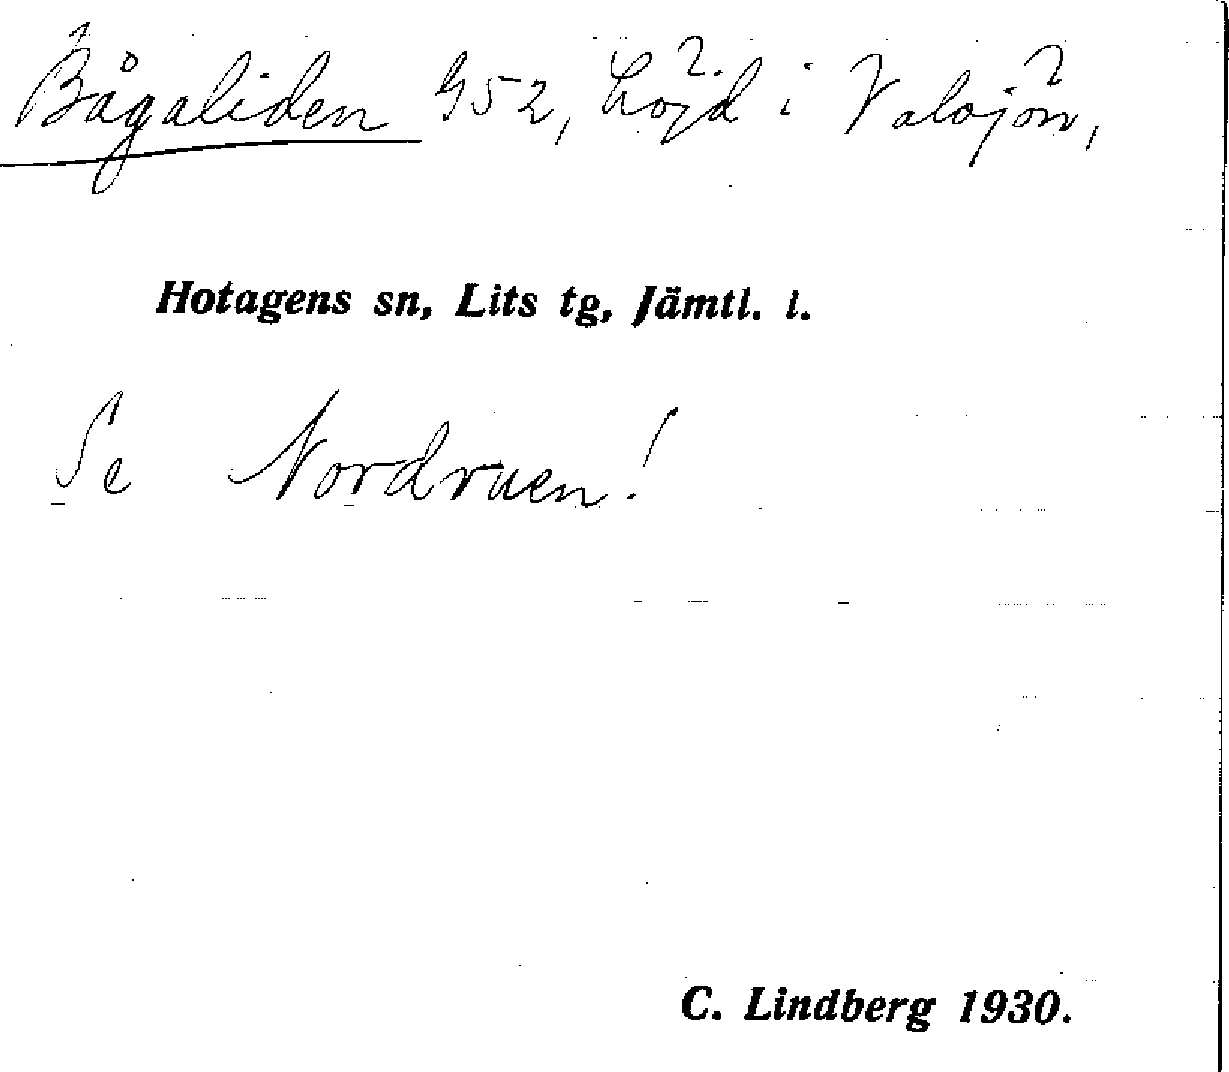 Bågaliden 952, höjd i Valsjön,
Hotagens sn, Lits tg, Jämtl. l.
Se Nordruen!
C. Lindberg 1930.